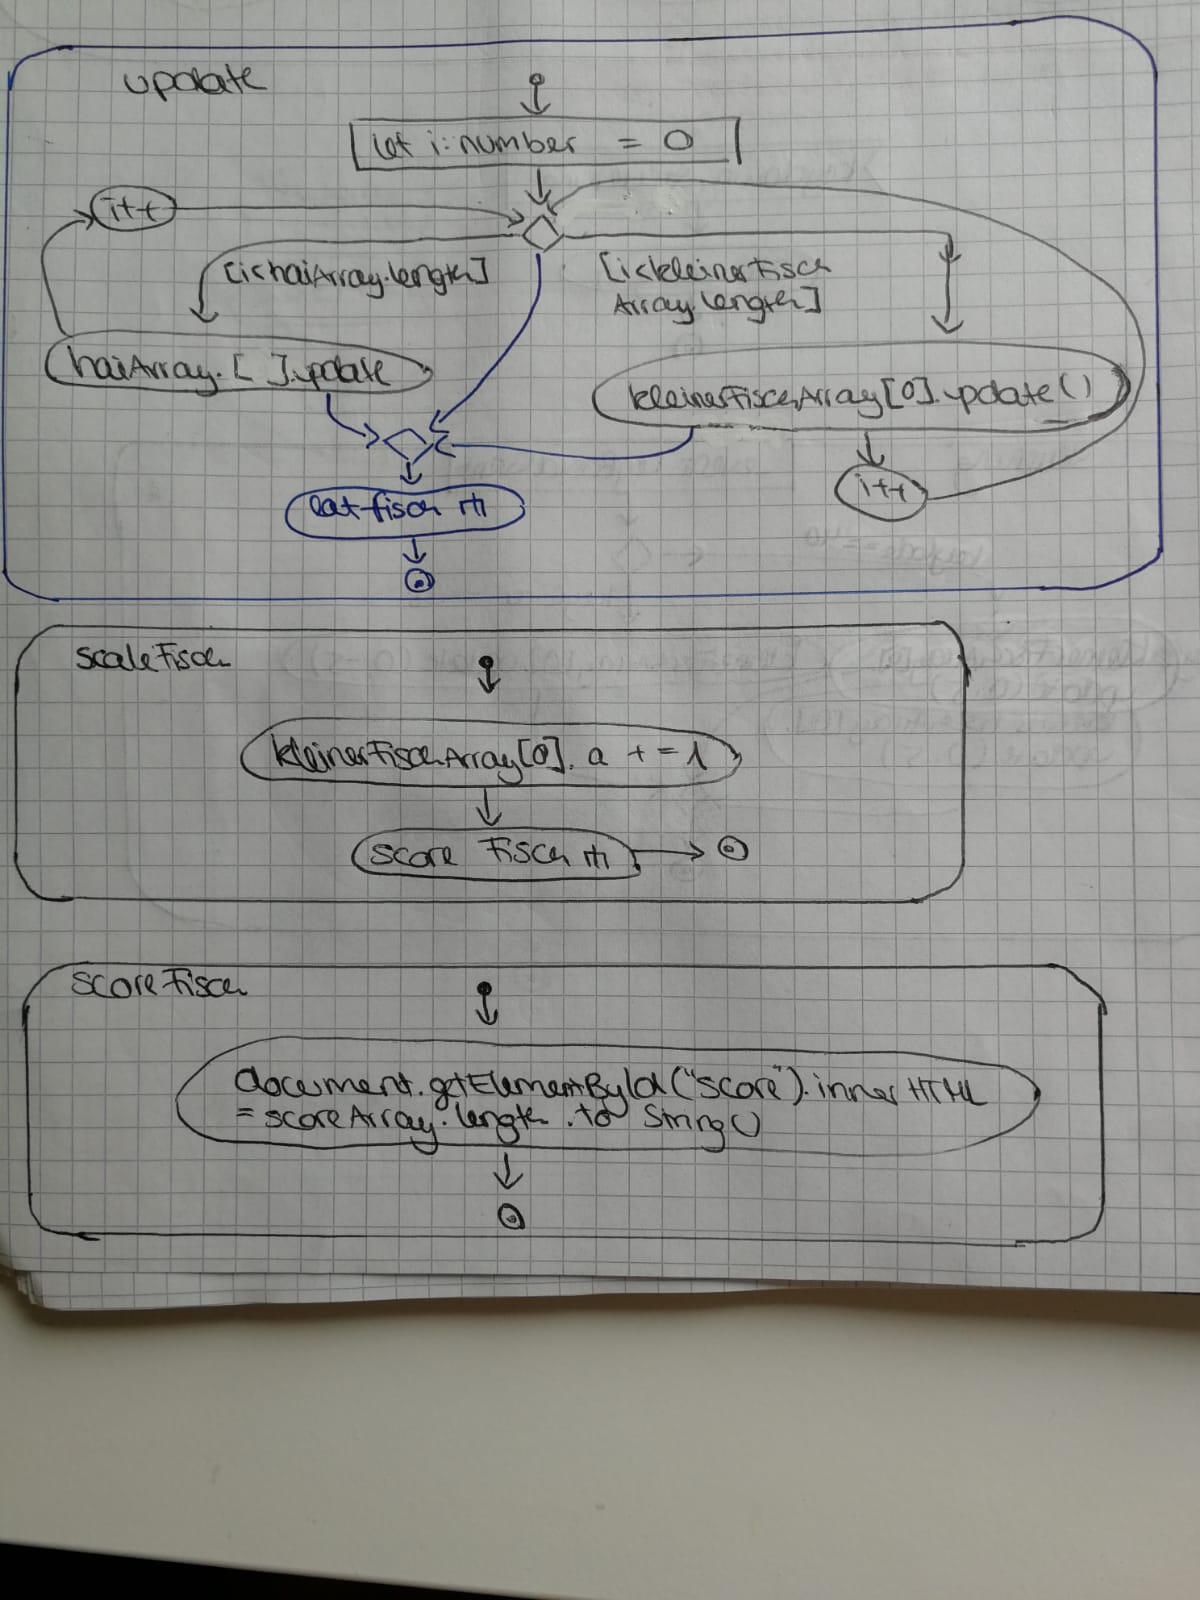 update
let i:number = 0
i++
[i<haiArray.length]
[i<kleinerFisch
Array.length]
haiArray.[ ].update
kleinerFischArray[0].update()
i++
eatfisch
scaleFisch
kleinerFischArray[0].a +=1
score Fisch
scoreFisch
document.getElementById("score").innerHTML
=scoreArray.length.to String()